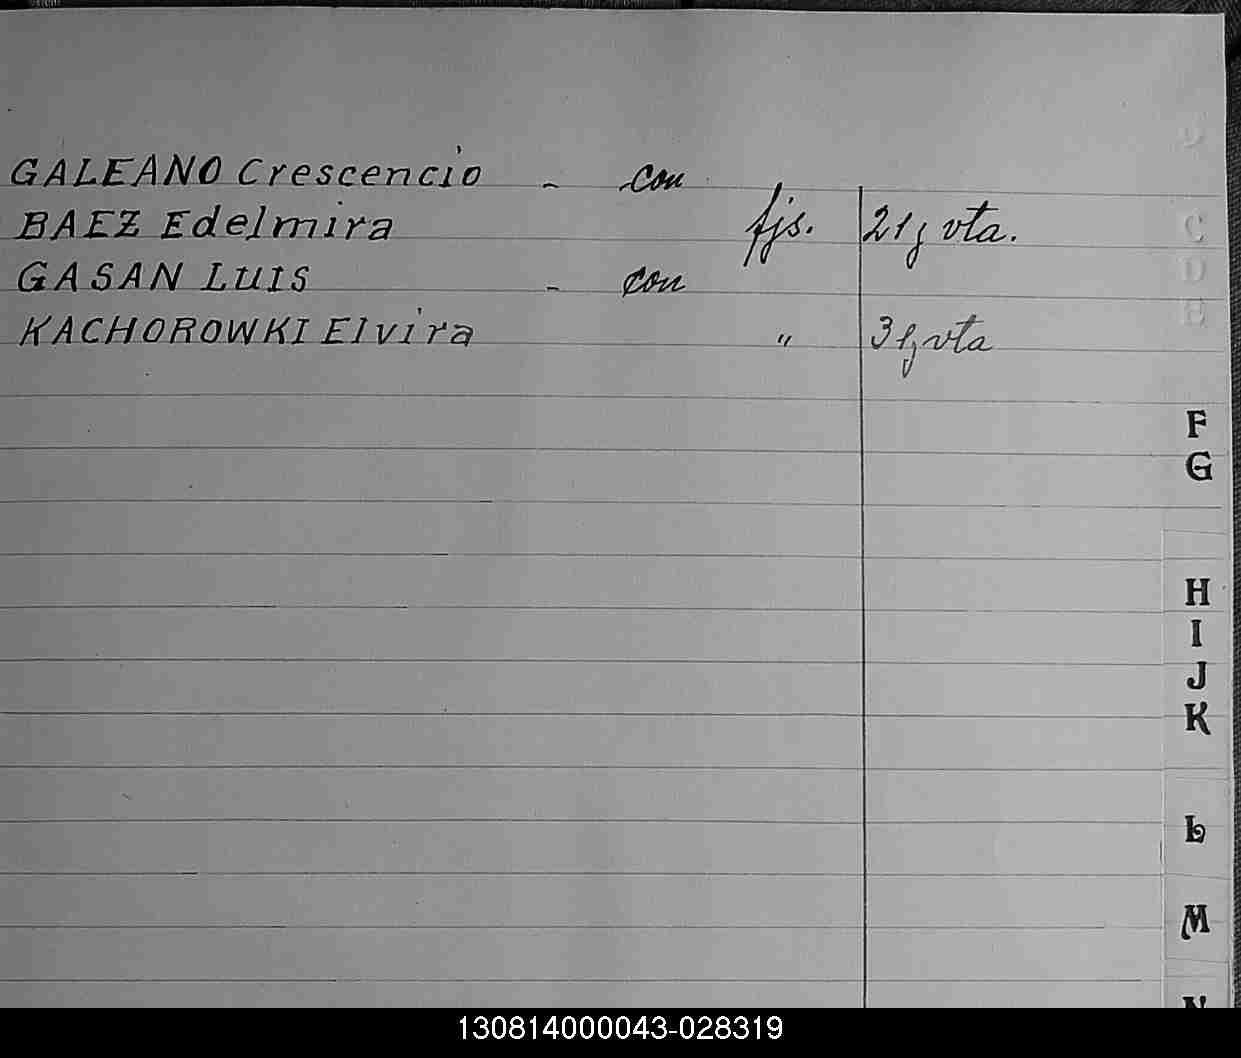 GALEANO Crescencio - con
BAEZ Edelmira fjs. 21 y vta.
GASAN LUIS - con
KACHOROWKI Elvira " 31 y vta
F
G
H
I
J
K
L
M
N
130814000043-028319